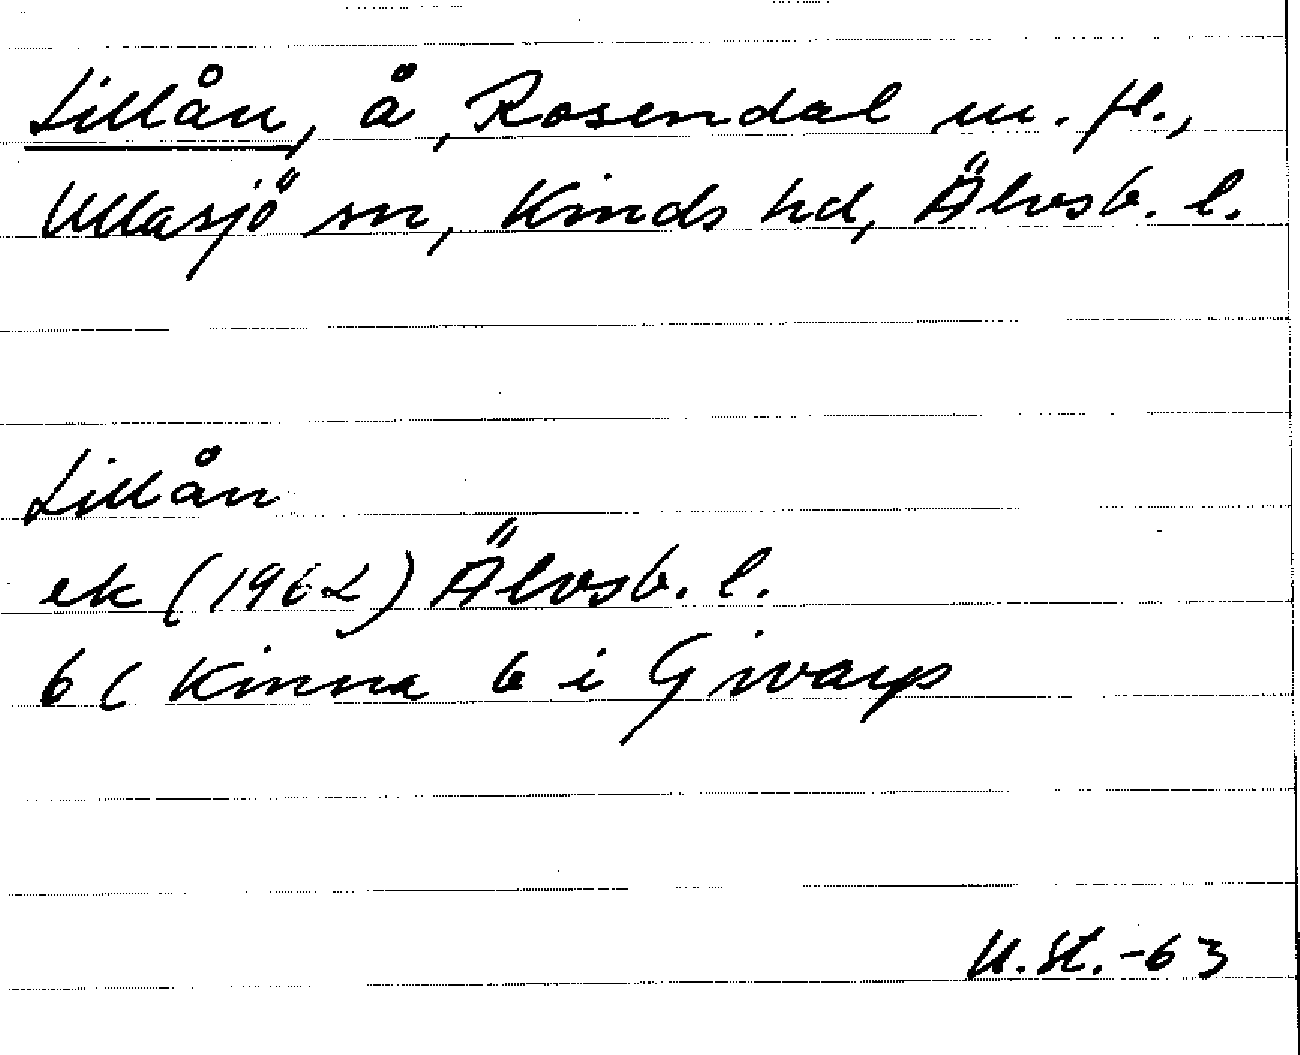 Lillån, å, Rosendal m. fl.,
Ullasjö sn, Kinds hd, Älvsb. l.
Lillån
ek (1962) Älvsb. l.
6 C Kinna 6 i Givarp
U.St.-63